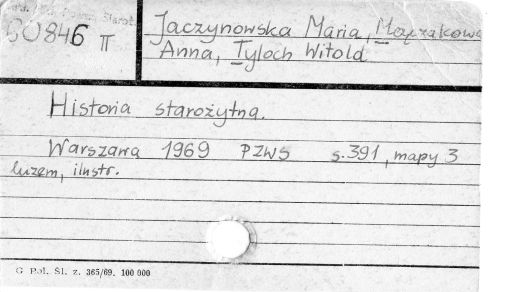 60846 II
Jaczynowska Maria,
Anna, Tyloch Witold
Historia starożytna.
Warszawa 1969 PZWS s.391, mapy 3
luzem, ilustr.
G Pol. Śl. z. 365/69. 100 000